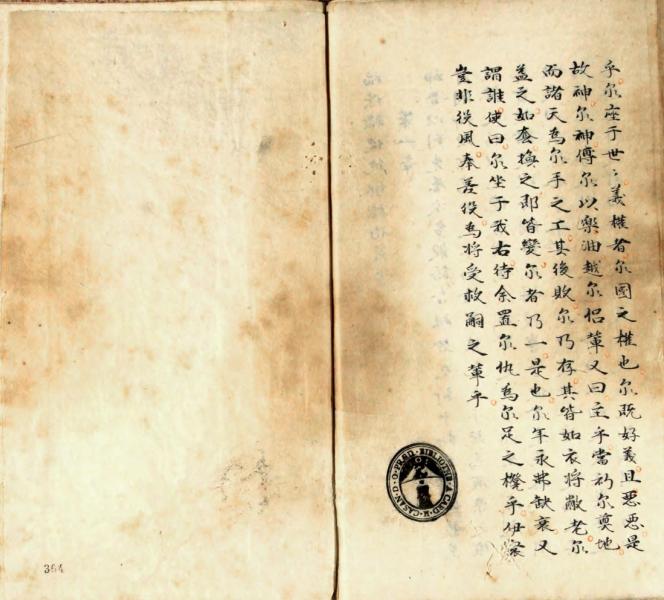 乎尔座于世〻義權者尔國之權也尔既好義且恶恶是
故神尔神傅尔以樂油越尔侣輩又曰主乎當初尔奠地
而諸天為尔手之工其後敗尔乃存其皆如衣將敝老尔
盖之如套換之即皆變尔者乃一是也尔年永弗缺衰又
謂誰使曰尔坐于我右待余置尔仇為尔足之櫈乎伊儕
豈非役風奉善役為将受救嗣之輩乎